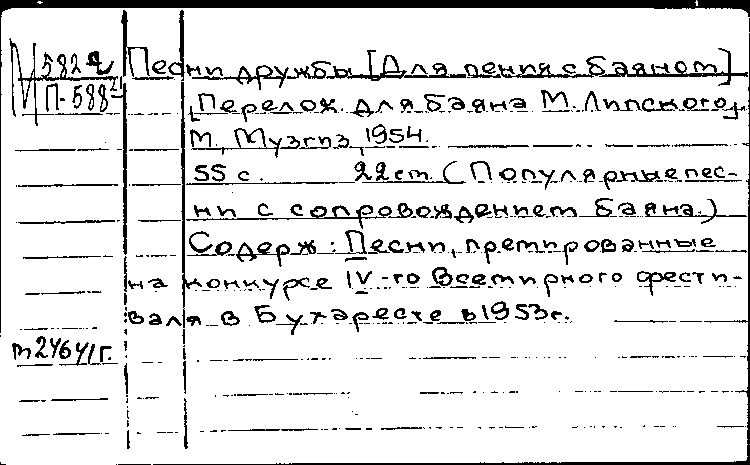 582
П-588
Песни дружбы [Для пения с баяном]
[Перелож. для баяна М. Липского].
М., Музгиз, 1954.
55 с. 22 ст. (Популярные пес-
ни с сопровождением баяна.)
Содерж: Песни, премированные
на конкурсе IV-го Всемирного фести-
валя в Бухаресте в 1953г.